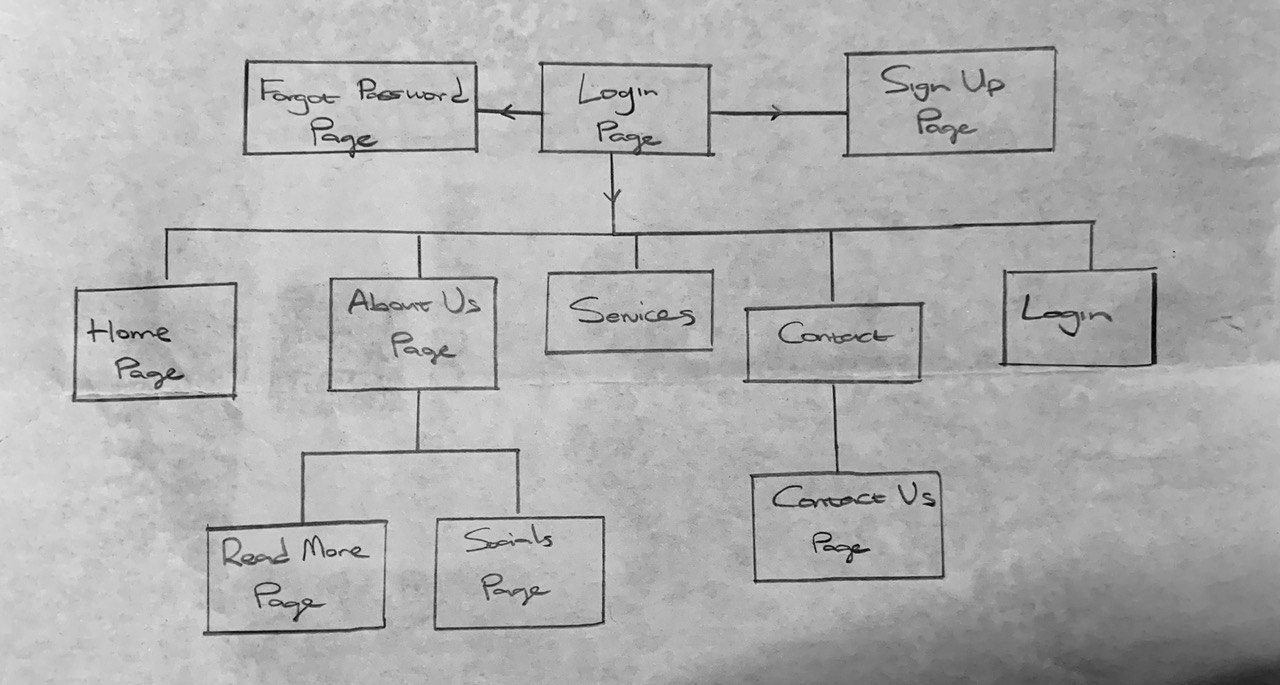 Forgot Password
Page
Login
Page
Sign Up
Page
Home
Page
About Us
Page
Services
Contact
Login
Read More
Page
Socials
Page
Contact Us
Page